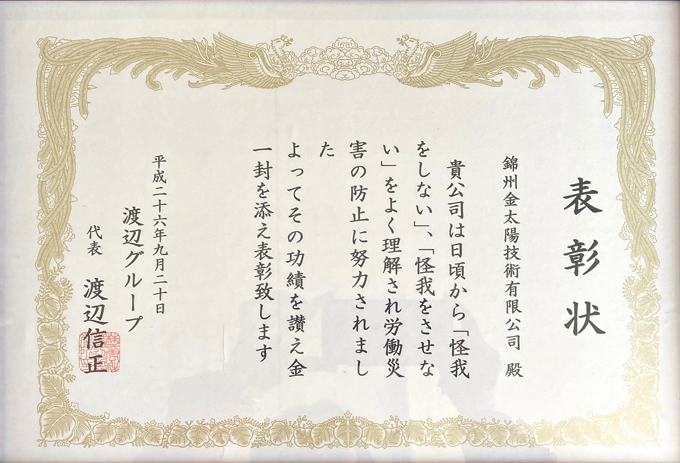 表彰状
錦州金太陽技術有限公司 殿
貴公司は日頃から「怪我
をしない」、「怪我をさせな
い」をよく理解され労働災
害の防止に努力されまし
た
よってその功績を讃え金
一封を添え表彰致します
平成二十六年九月二十日
渡辺グループ
代表 渡辺信正